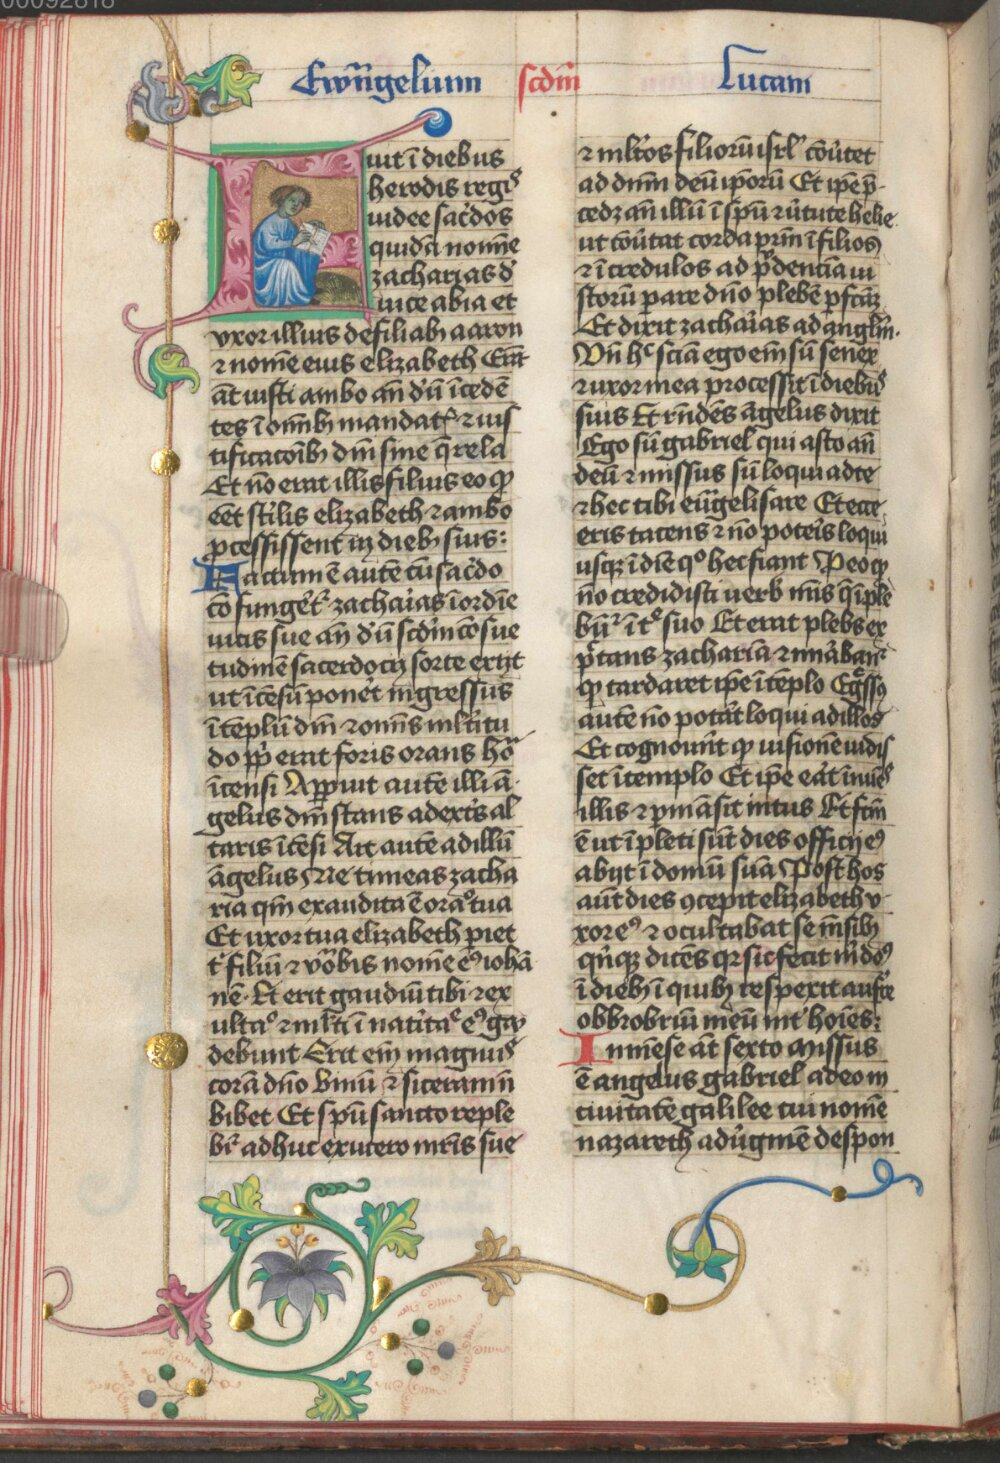 00092818
Ewãngelium scdm̄ Lucam
uit ī diebus
herodis regꝭ
iudee sac̓dos
quidā nomīe
zacharias d̓
uice abia et
vxor illius de filiab₉ aaron
⁊ nomē eius elizabeth Erāt
āt iusti ambo an̄ dm̄ īcedē
tes ī omīb₉ mandatꝭ ⁊ ius
tificacōib₉ dn̄i sine q̄rela
Et nō erat illis filius eo ꝙ
eēt st̓ilis elizabeth ⁊ ambo
ꝓcessissent in dieb₉ suis:
Factum ē autē cū sac̓do
tō funget̓ zacharias ī ordīe
uicis sue an̄ dm̄ scdm̄ cōsue
tudinē sacerdocij sorte exijt
ut īcēsū ponet̓ ingressus
ī tēplū dn̄i ⁊ omīs ml̓titu
do pp̄li erat foris orans hōra
īcensi Apꝑuit autē illi ā
gelus dn̄i stans a dext̓s al
taris īcēsi Ait autē ad illū
āgelus Ne timeas zacha
ria qm̄ exaudita ē orac̄o tua
Et uxor tua elizabeth pariet
t̓ filiū ⁊ vocabis nomē eꝰ iohā
nē Et erit gaudiū tibi ⁊ ex
ultac̄o ⁊ ml̓ti ī natiītate eꝰ gau
debunt Erit em̄ magnus
corā dn̄o Vinū ⁊ siceram n̄
bibet Et spū sancto reple
bit̓ adhuc ex utero mr̄is sue
⁊ ml̓tos filiorū isrl̓ cōu̓tet
ad dnm̄ deū ip̄orū Et ip̄e p̄
cedz an̄ illū ī spū ⁊ u̓tute helie
ut cōu̓tat corda pr̄m ī filios
⁊ īcredulos ad p̄dencīa iu
storū parare dn̄o plebē pfc̄āz
Et dixit zacharias ad anglm̄
Vn̄ hͨ sciā ego em̄ sū senex
⁊ uxor mea processit ī diebus
suis Et rn̄dēs āgelus dixit
Ego sū gabriel qui asto an̄
deū ⁊ missus sū loqui ad te
⁊ hec tibi eūgelisare Et ecce
eris tacens ⁊ nō potēis loqui
usqz ī diē qͦ hec fiant Ꝓ eo ꝙ
nō credidisti uerb̓ meis q̄ īple
būt̓ ī tꝑe suo Et erat plebs ex
pctans zachariā ⁊ mirābant̓
ꝙ tardaret ip̄e ī tēplo Egressꝰ
autē nō potāt loqui ad illos
Et cognouer̄t ꝙ uisionē uidis
set ī templo Et ip̄e erāt īnuēs
illis ⁊ pmāsit mutus Et fcm̄
ē ut īpleti sūt dies officij eꝰ
abijt ī domū suā Post hos
aūt dies ꝯcepit elizabeth v
xor eꝰ ⁊ ocultabat se mēsib₉
qīnqz dicēs qr sic fecit m̓ dn̄s
ī dieb₉ ī quib₉ respexit aufēre
obbrobriū meū int̓ hoīes:
In mēse āt sexto Missus
ē angelus gabriel a deo in
ciuitatē galilee cui nomē
nazareth ad u̓ginē despon